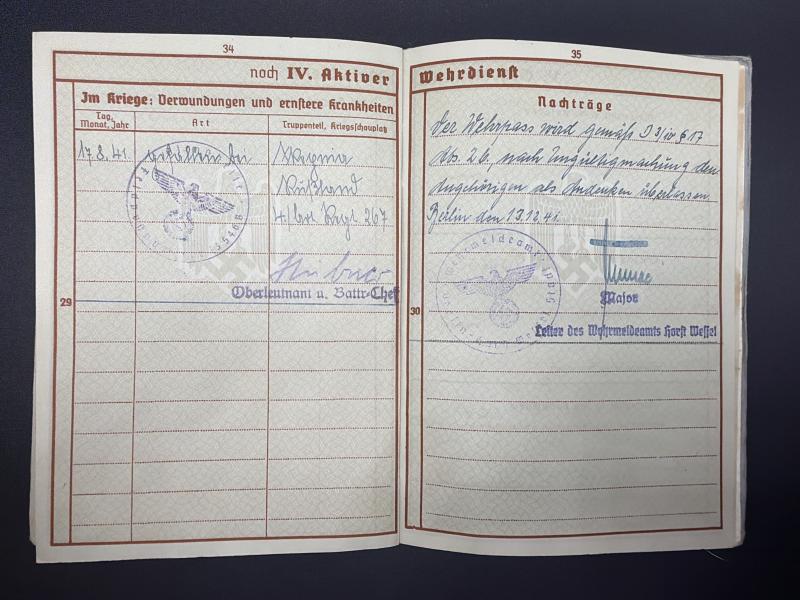 34
noch IV. Aktiver
Im Kriege: Verwundungen und ernstere Krankheiten
Tag, Monat, Jahr
Art
Truppenteil, Kriegsschauplatz
17.8.41.
gefallen bei
Rußland
4/Art. Regt. 267
Oberleutnant u. Battr.-Chef
29
35
Wehrdienst
Nachträge
Der Wehrpass wird gemäß D 3/iv § 17
Abs. 2b, nach Ungültigmachung den
Angehörigen als Andenken überlassen.
Berlin den 13.12.41.
30
Major
Leiter des Wehrmeldeamts Horst Wessel